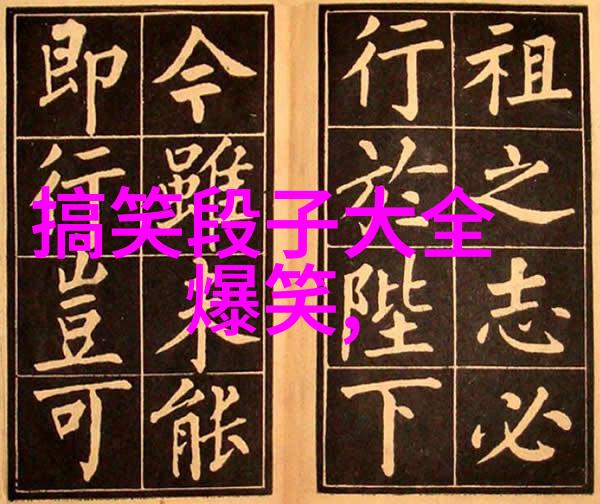 祖之志必
行於陛下
今雖能
即行豈可
搞笑段子大全
爆笑,